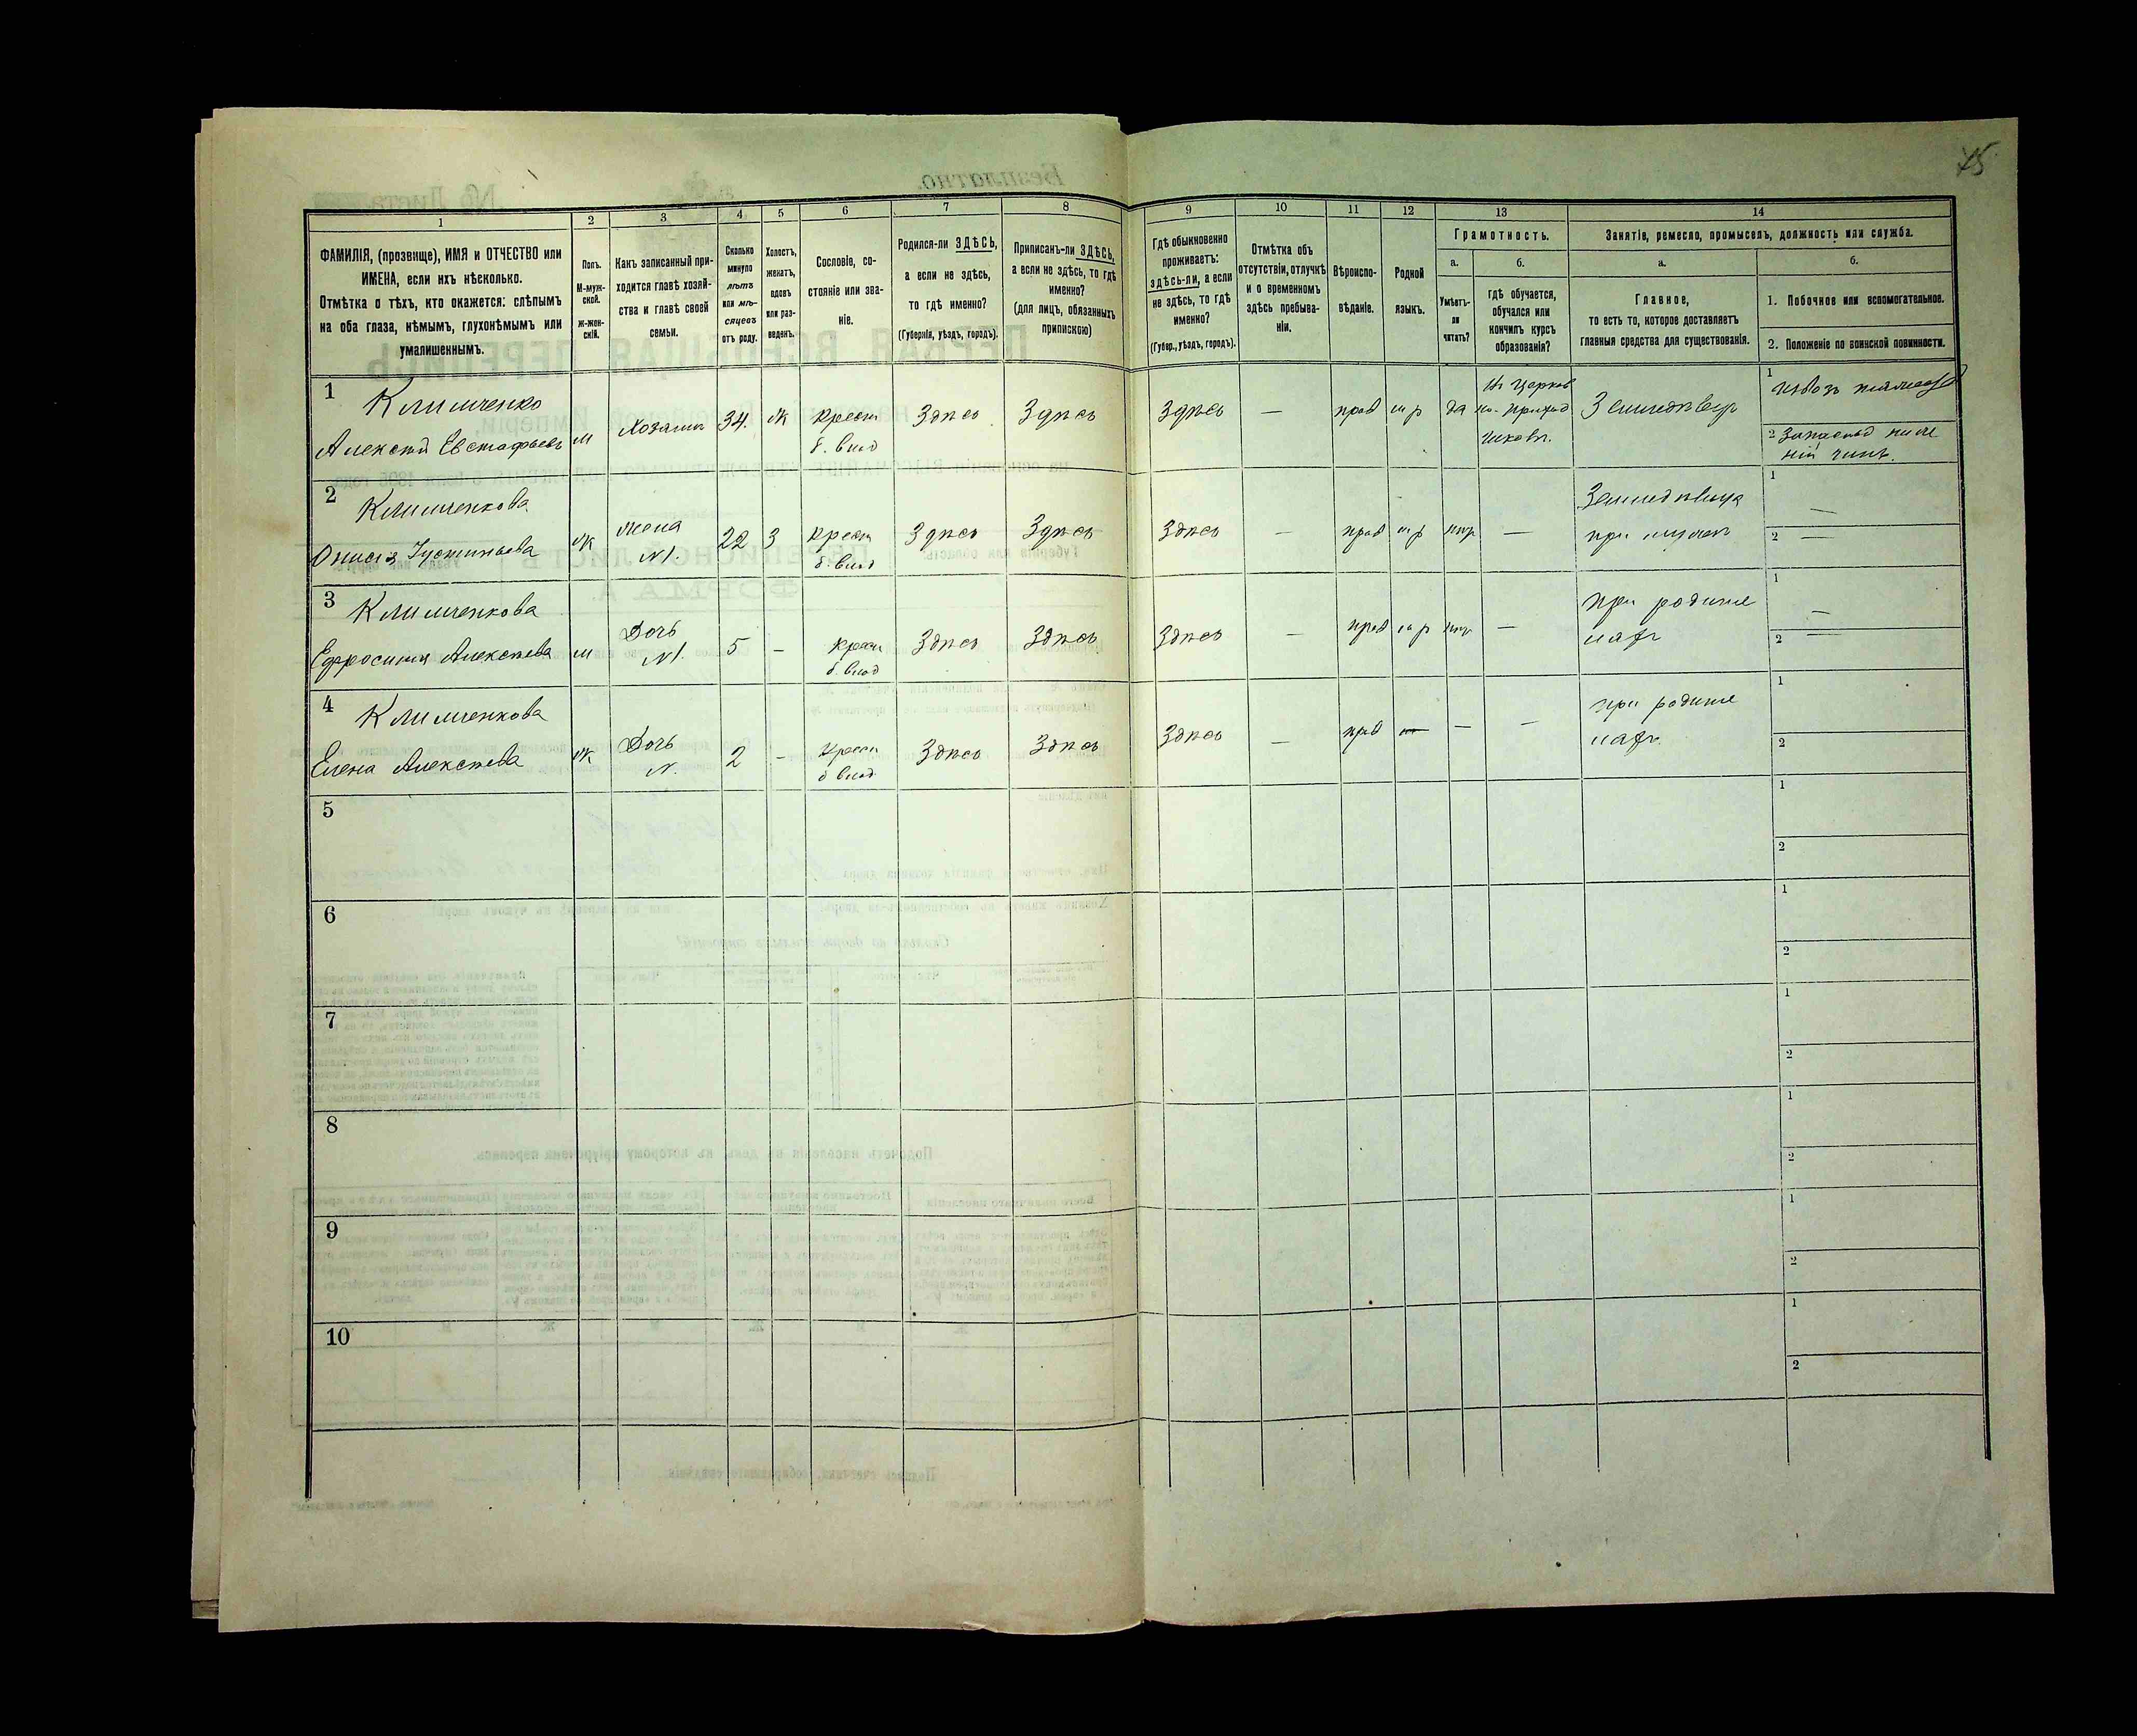 75
1 2 3 4 5 6 7 8 9 10 11 12 13 14
ФАМИЛІЯ, (прозвище), ИМЯ и ОТЧЕСТВО или
ИМЕНА, если ихъ нѣсколько.
Отмѣтка о тѣхъ, кто окажется: слѣпымъ
на оба глаза, нѣмымъ, глухонѣмымъ или
умалишеннымъ.
Полъ.
М-муж-
ской.
Ж-жен-
скій.
Какъ записанный при-
ходится главѣ хозяй-
ства и главѣ своей
семьи.
Сколько
минуло
лѣтъ
или мѣ-
сяцевъ
отъ роду.
Холостъ,
женатъ,
вдовъ
или раз-
веденъ.
Сословіе, со-
стояніе или зва-
ніе.
Родился-ли ЗДѢСЬ,
а если не здѣсь,
то гдѣ именно?
(Губернія, уѣздъ, городъ).
Приписанъ-ли ЗДѢСЬ,
а если не здѣсь, то гдѣ
именно?
(для лицъ, обязанныхъ
припискою)
Гдѣ обыкновенно
проживаетъ:
здѣсь-ли, а если
не здѣсь, то гдѣ
именно?
(Губер., уѣздъ, городъ).
Отмѣтка объ
отсутствіи, отлучкѣ
и о временномъ
здѣсь пребыва-
ніи.
Вѣроиспо-
вѣданіе.
Родной
языкъ.
Грамотность.
а.
Умѣетъ-
ли
читать?
б.
гдѣ обучается,
обучался или
кончилъ курсъ
образованія?
Занятіе, ремесло, промыселъ, должность или служба.
а.
Главное,
то есть то, которое доставляетъ
главныя средства для существованія.
б.
1. Побочное или вспомогательное.
2. Положеніе по воинской повинности.
1
Климченко
Алексѣй Евстафьевъ
м
Хозяинъ
34.
Ж
крест
б. влад
Здѣсь
Здѣсь
Здѣсь
—
прав
м р
да
Въ Церков
но-приход
школѣ.
Земледѣлецъ
1
Извозъ
2 Запасной ниж
ній чинъ.
2
Климченкова
Устиньева
Ж
жена
№1.
22
З
крест
б. влад
Здѣсь
Здѣсь
Здѣсь
—
прав
м р
нѣт
—
Земледѣлица
при мужѣ
1 —
2 —
3
Климченкова
Ефросинья Алексѣева
м
Дочь
№1.
5
-
крест
б. влад
Здѣсь
Здѣсь
Здѣсь
—
прав
м р
нѣт
—
при родите
ляхъ
1 —
2 —
4
Климченкова
Елена Алексѣева
Ж
Дочь
2
-
крест
б влад
Здѣсь
Здѣсь
Здѣсь
—
прав
—
—
—
при родите
ляхъ.
1
2
5
1
2
6
1
2
7
1
2
8
1
2
9
1
2
10
1
2